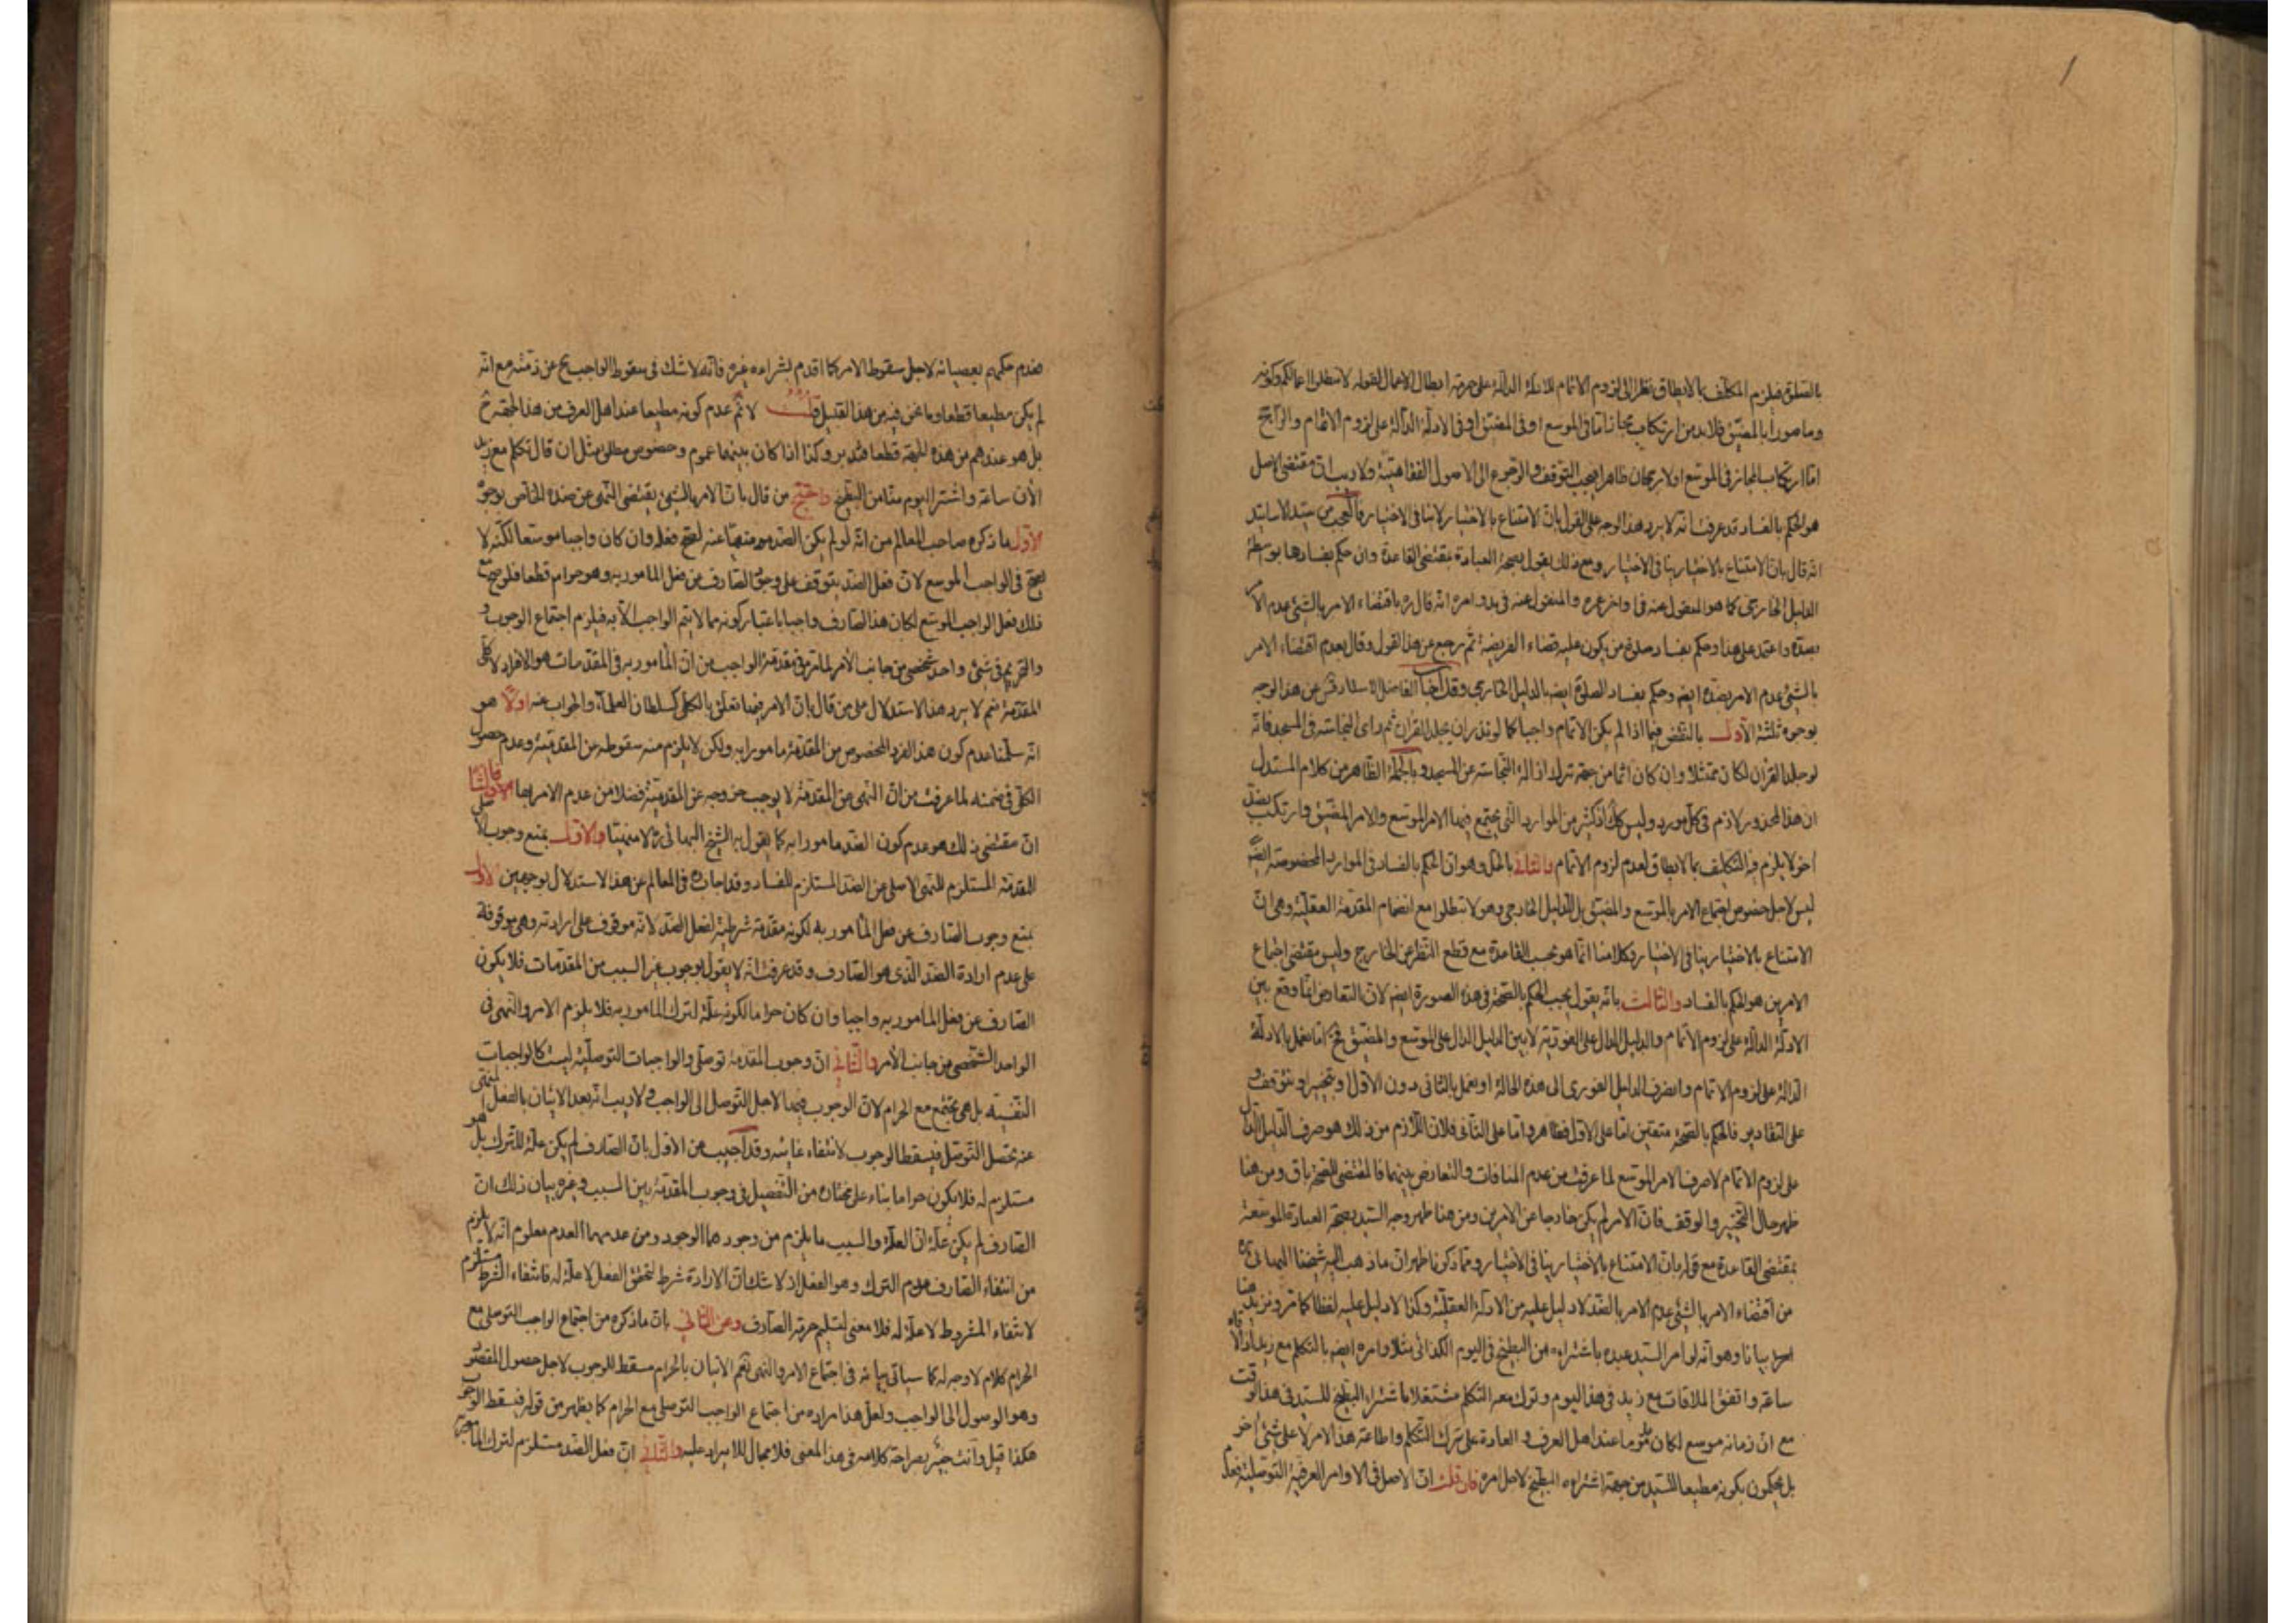 بالصلوة فيلزم المكلف بالايطاق نظرا الى لزوم الاتمام للادلة الدالة على حرمة ابطال الاعمال لقوله لا تبطلوا اعمالكم وكونه
ومامورا بالمضيق فلابد من ارتكاب مجاز اما فى الموسع او فى المضيق او فى الادلة الدالة على لزوم الاتمام والراجح
اما ارتكاب المجاز فى الموسع اولا رجحان ظاهرا فيجب التوقف والرجوع الى الاصول الفقاهتية ولا ريب ان مقتضى الاصل
هو الحكم بالفساد قد عرفت انه لا يرد هذا الوجه على القول بان الامتناع بالاختيار لا ينافى الاختيار فالعجب من سيد الاساتيد
انه قال بان الامتناع بالاختيار ينافى الاختيار ومع ذلك يقول بصحة العبادة بمقتضى القاعدة وان حكم بفسادها بوسطة
الدليل الخارجى كما هو المنقول عنه فى اواخر عمره والمنقول عنه فى بدو امره انه قال ره باقتضاء الامر بالشئ عدم الامر
بضده واعتمد على هذا وحكم بفساد صلوة من يكون عليه قضاء الفريضة ثم رجع عن هذا القول وقال بعدم اقتضاء الامر
بالشئ عدم الامر بضده ايضا وحكم بفساد الصلوة ايضا بالدليل الخارجى وقد اجاب الفاضل الاستاد عن هذا الوجه
بوجوه ثلثة الاول بالنقض فيما اذا لم يكن الاتمام واجبا كما لو نذر ان يجلد القران ثم راى النجاسة فى المسجد فانه
لو جلد القران لكان ممتثلا وان كان اثما من جهة ترك ازالة النجاسة عن المسجد وبالجملة الظاهر من كلام المستدل
ان هذا المحذور لازم فى كل مورد وليس كذلك اذ كثير من الموارد التى يجتمع فيها الامر الموسع والامر المضيق وارتكب بضد
اخر لا يلزم فيه التكليف بما لا يطاق لعدم لزوم الاتمام والثانى بالحل وهو ان الحكم بالفساد فى الموارد المخصوصة ايضا
ليس لاجل خصوص اجتماع الامر بالموسع والمضيق بل للدليل الخارجى وهو لا تبطلوا مع انضمام المقدمة العقلية وهى ان
الامتناع بالاختيار ينافى الاختيار وكلامنا انما هو بحسب القاعدة مع قطع النظر عن الخارج وليس مقتضى اجتماع
الامرين هو الحكم بالفساد والثالث بانه يقول يجب الحكم بالصحة فى هذه الصورة ايضا لان التعارض انما وقع بين
الادلة الدالة على لزوم الاتمام والدليل الدال على الفورية لا بين الدليل الدال على الموسع والمضيق فح اما نعمل بالادلة
الدالة على لزوم الاتمام وانصرف الدليل الفورى الى هذه الحالة او نعمل بالثانى دون الاول او نتخير او نتوقف و
على التقادير فالحكم بالصحة متعين اما على الاول فظاهر واما على الثانى فلان اللازم من ذلك هو صرف الدليل الدال
على لزوم الاتمام لا صرف الامر الموسع لما عرفت من عدم المنافات والتعارض بينهما فالمقتضى للصحة باق ومن هنا
ظهر حال التخيير والوقف فان الامر لم يكن خارجا عن الامرين ومن هنا ظهر وجه السيد بصحة العبادة الموسعة
بمقتضى القاعدة مع قوله بان الامتناع بالاختيار ينافى الاختيار ومما ذكرنا ظهر ان ما ذهب اليه شيخنا البهائى ره
من اقتضاء الامر بالشئ عدم الامر بالضد لا دليل عليه من الادلة العقلية وكذا لا دليل عليه لفظا كما مر ونزيد هنا
بيانا وهو انه لو امر السيد عبده باشتراء من البطيخ فى اليوم الكذائى مثلا وامره ايضا بالتكلم مع زيد
ساعة واتفق الملاقات مع زيد فى هذا اليوم وترك معه التكلم مشتغلا باشتراء البطيخ للسيد فى هذا الوقت
مع ان زمانه موسع لكان ملزوما عند اهل العرف والعادة على ترك التكلم واطاعة هذا الامر لا على شئ اخر
بل يحكمون بكونه مطيعا للسيد من جهة اشتراء البطيخ لاجل امره فان قلت ان الاصل فى الاوامر العرفية التوصلية
فعدم حكمهم بعصيانه لاجل سقوط الامر كما اقدم بشراءه غيره فانه لا شك فى سقوط الواجب ح عن ذمته مع انه
لم يكن مطيعا قطعا وما نحن فيه من هذا القبيل قلت لا نم عدم كونه مطيعا عند اهل العرف من هذا الجهة
بل هو عندهم من هذه الجهة قطعا فتدبر وكذا اذا كان بينهما عموم وخصوص مطلق مثل ان قال تكلم مع زيد
الان ساعة واشتر اليوم منا من البطيخ واحتج من قال بان الامر بالشئ يقتضى النهى عن ضده الخاص بوجوه
الاول ما ذكره صاحب المعالم من انه لو لم يكن الضد منهيا عنه لصح فعله وان كان واجبا موسعا لكنه لا
يصح فى الواجب الموسع لان فعل الضد يتوقف على وجود الصارف عن فعل المامور به وهو حرام قطعا فلو صح مع
ذلك فعل الواجب الموسع لكان هذا الصارف واجبا باعتبار كونه مما لا يتم الواجب الا به فيلزم اجتماع الوجوب و
والتحريم فى شئ واحد شخصى من جانب الامر لما مر فى مقدمة الواجب من ان المامور به فى المقدمات هو الافراد لا كلى
المقدمة نعم لا يرد هذا الاستدلال على من قال بان الامر فيها تعلق بالكلى كسلطان العلماء والجواب عنه اولا هو
انه سلمنا عدم كون هذا الفرد المخصوص من المقدمة مامورا به ولكن لا يلزم منه سقوطه عن المقدمية وعدم حصول
الكلى فى ضمنه لما عرفت من ان النهى عن المقدمة لا يوجب خروجه عن المقدمية فضلا من عدم الامر بها
ان مقتضى ذلك هو عدم كون الضد مامورا به كما يقول به الشيخ البهائى ره لا منهيا والاول بمنع وجوب
المقدمة المستلزم للنهى الاصلى عن الضد المستلزم للفساد وقد اجاب ره فى المعالم عن هذا الاستدلال بوجهين الاول
بمنع وجوب الصارف عن فعل المامور به لكونه مقدمة شرطية لفعل الضد لانه موقوف على ارادته وهى موقوفة
على عدم ارادة الضد الذى هو الصارف وقد عرفت انه لا يقول بوجوب غير السبب من المقدمات فلا يكون
الصارف عن فعل المامور به واجبا وان كان حراما لكونه علة لترك المامور به فلا يلزم الامر والنهى فى
الواحد الشخصى من جانب الامر والثانى ان وجوب المقدمة توصلى والواجبات التوصلية ليست كالواجبات
النفسية بل هى تجتمع مع الحرام لان الوجوب فيها لاجل التوصل الى الواجب ولا ريب انه بعد الاتيان بالفعل المنهى
عنه يحصل التوصل فيسقط الوجوب لانتفاء غايته وقد اجيب عن الاول بان الصارف لم يكن علة للترك بل هو
مستلزم له فلا يكون حراما بناء على مختاره من التفصيل فى وجوب المقدمة بين السبب وغيره بيان ذلك ان
الصارف لم يكن علة ان العلة والسبب ما يلزم من وجودهما الوجود ومن عدمهما العدم معلوم انه لا يلزم
من انتفاء الصارف عدم الترك وهو الفعل اذ لا شك ان الارادة شرط لتحقق الفعل لا علة له فانتفاء الشرط مستلزم
لانتفاء المشروط لا علة له فلا معنى لتسليم حرمة الصارف وعن الثانى بان ما ذكره من اجتماع الواجب التوصلى مع
الحرام كلام لا وجه له كما سياتى بيانه فى اجتماع الامر والنهى نعم الاتيان بالحرام مسقط للوجوب لاجل حصول المقصود
وهو الوصول الى الواجب ولعل هذا مراده من اجتماع الواجب التوصلى مع الحرام كما يظهر من قوله فيسقط الوجوب
هكذا قيل وانت خبير بصراحة كلامه فى هذا المعنى فلا مجال للايراد عليه والثانى ان فعل الضد مستلزم لترك المامور به